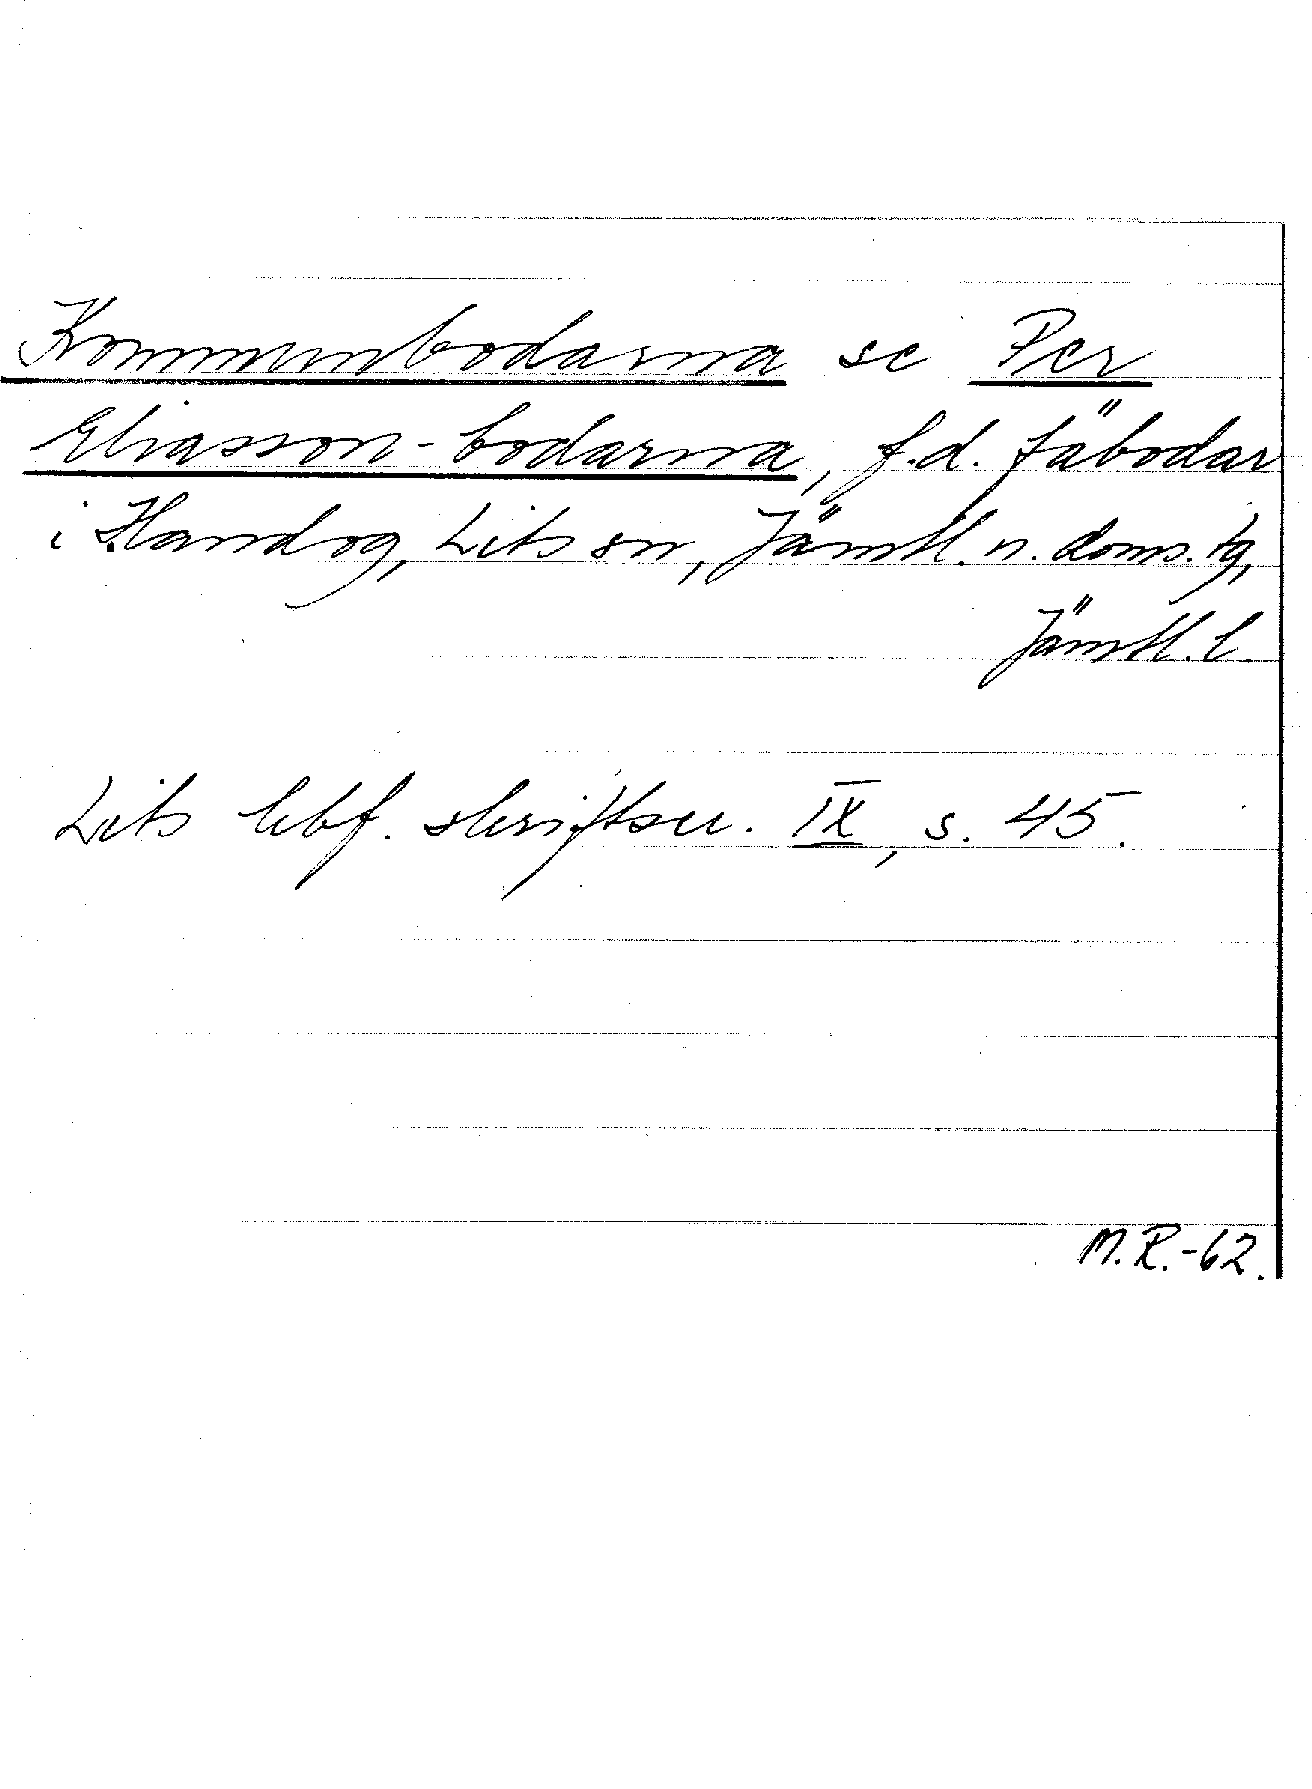 Kommunbodarna se Per
Eliasson-bodarna, f.d. fäbodar
i Handog, Lits sn, Jämtl. n. doms. tg,
Jämtl. l.
Lits hbf. skriftser. IX, s. 45.
M.R.-62.